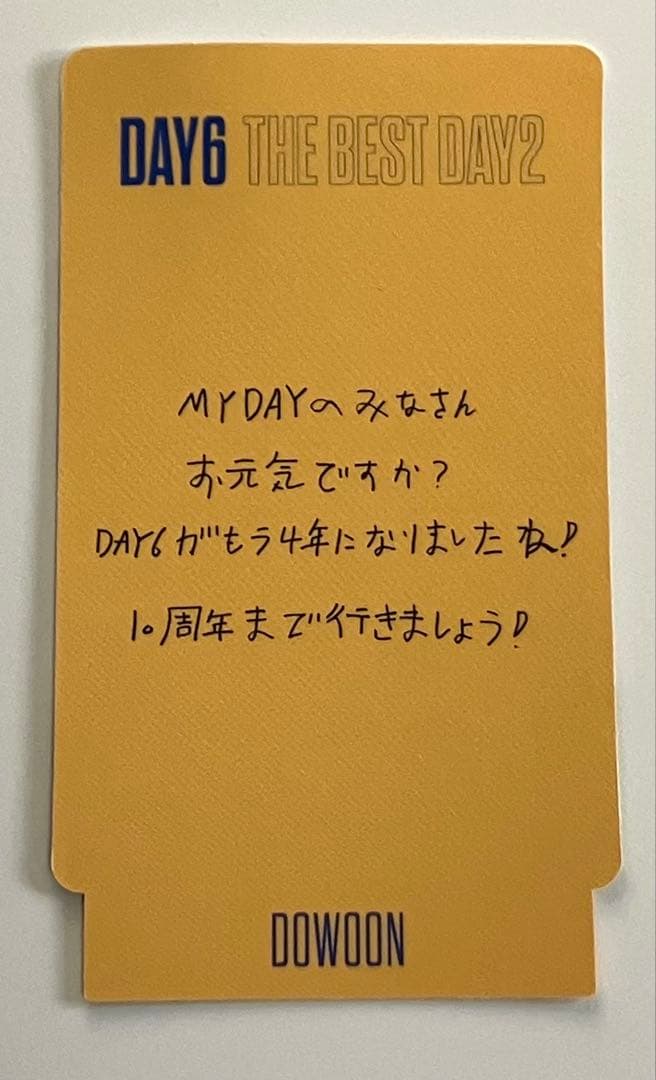 DAY6 THE BEST DAY2
MYDAYのみなさん
お元気ですか?
DAY6がもう4年になりましたね!
10周年まで行きましょう!
DOWOON